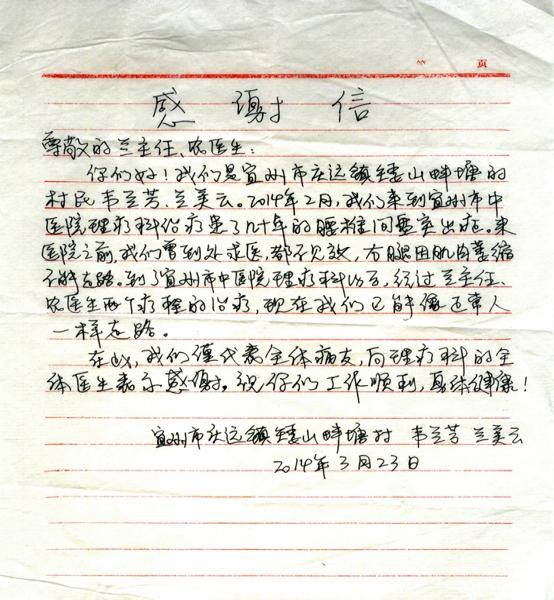 页
感谢信
尊敬的兰主任、农医生:
你们好!我们是宜州市庆远镇矮山畔塘的
村民韦兰芳、兰美云。2014年2月,我们来到宜州市中
医院理疗科治疗患了几十年的腰椎间盘突出症。来
医院之前,我们曾到处求医,都不见效,右腿因肌肉萎缩
不能走路。到了宜州市中医院理疗科以后,经过兰主任、
农医生两个疗程的治疗,现在我们已能像正常人
一样走路。
在此,我们仅代表全体病友,向理疗科的全
体医生表示感谢。祝你们工作顺利,身体健康!
宜州市庆远镇矮山畔塘村 韦兰芳 兰美云
2014年3月23日